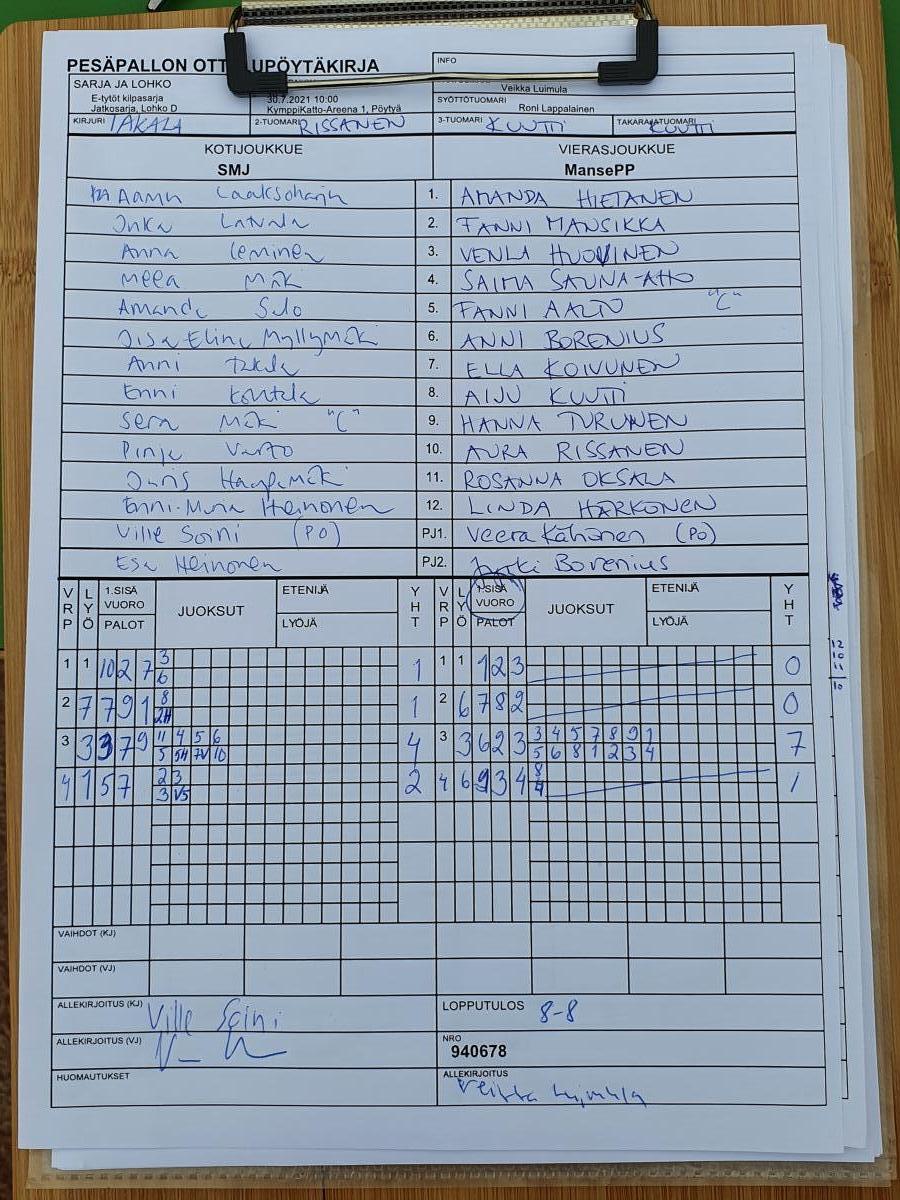 PESÄPALLON OTT UPÖYTÄKIRJA
INFO
SARJA JA LOHKO
E-tytöt kilpasarja
Jatkosarja, Lohko D
30.7.2021 10:00
KymppiKatto-Areena 1, Pöytyä
Veikka Luimula
SYÖTTÖTUOMARI
Roni Lappalainen
KIRJURI TAKALA 2-TUOMARI RISSANEN 3-TUOMARI KUUTTI TAKARAJATUOMARI KUUTTI
KOTIJOUKKUE VIERASJOUKKUE
SMJ MansePP
Aamu Laaksoharju 1. AMANDA HIETANEN
Inka Latvala 2. FANNI MANSIKKA
Anna Leminen 3. VENLA HUOVINEN
Meea Mäki 4. SAIMA SAUNA-AHO
Amanda Salo 5. FANNI AALTO "C"
Elina Myllymäki 6. ANNI BORENIUS
Anni Takala 7. ELLA KOIVUNEN
Enni Kontala 8. AIJU KUUTTI
Sera Mäki "C" 9. HANNA TURUNEN
Pinja Varto 10. AURA RISSANEN
Haapamäki 11. ROSANNA OKSALA
Enni-Maria Heinonen 12. LINDA HARKONEN
Ville Soini (PO) PJ1. Veera Kähönen (PO)
Esa Heinonen PJ2. Borenius
VRP LYÖ 1.SISÄ VUORO PALOT JUOKSUT ETENIJÄ LYÖJÄ YHT VRP LYÖ 1.SISÄ VUORO PALOT JUOKSUT ETENIJÄ LYÖJÄ YHT
1 1 10 2 7 3 1 1 1 1 2 3 0
6
2 7 7 9 1 8 1 2 6 7 8 2 0
2H
3 3 3 7 9 11 4 5 6 4 3 3 6 2 3 3 4 5 7 8 9 1 7
5 5H 7V 10 5 6 8 1 2 3 4
4 1 5 7 2 3 2 4 6 9 3 4 8 1
3 V5 4
VAIHDOT (KJ)
VAIHDOT (VJ)
ALLEKIRJOITUS (KJ) Ville Soini LOPPUTULOS 8-8
ALLEKIRJOITUS (VJ) NRO
940678
HUOMAUTUKSET ALLEKIRJOITUS
Veikka Luimula